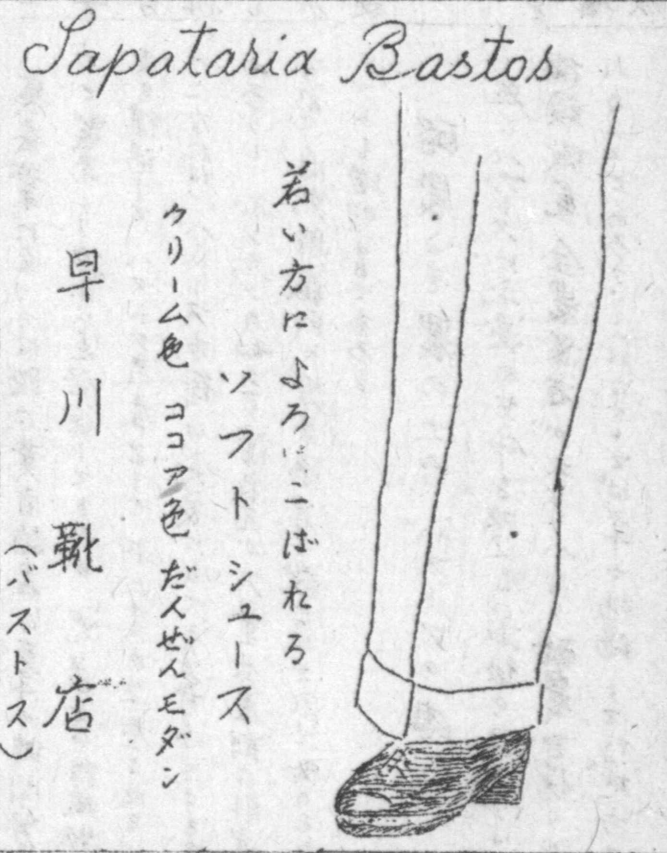 Sapataria Bastos
若い方によろこばれる
ソフトシューズ
クリーム色 ココア色 だんぜんモダン
早川靴店
(バストス)